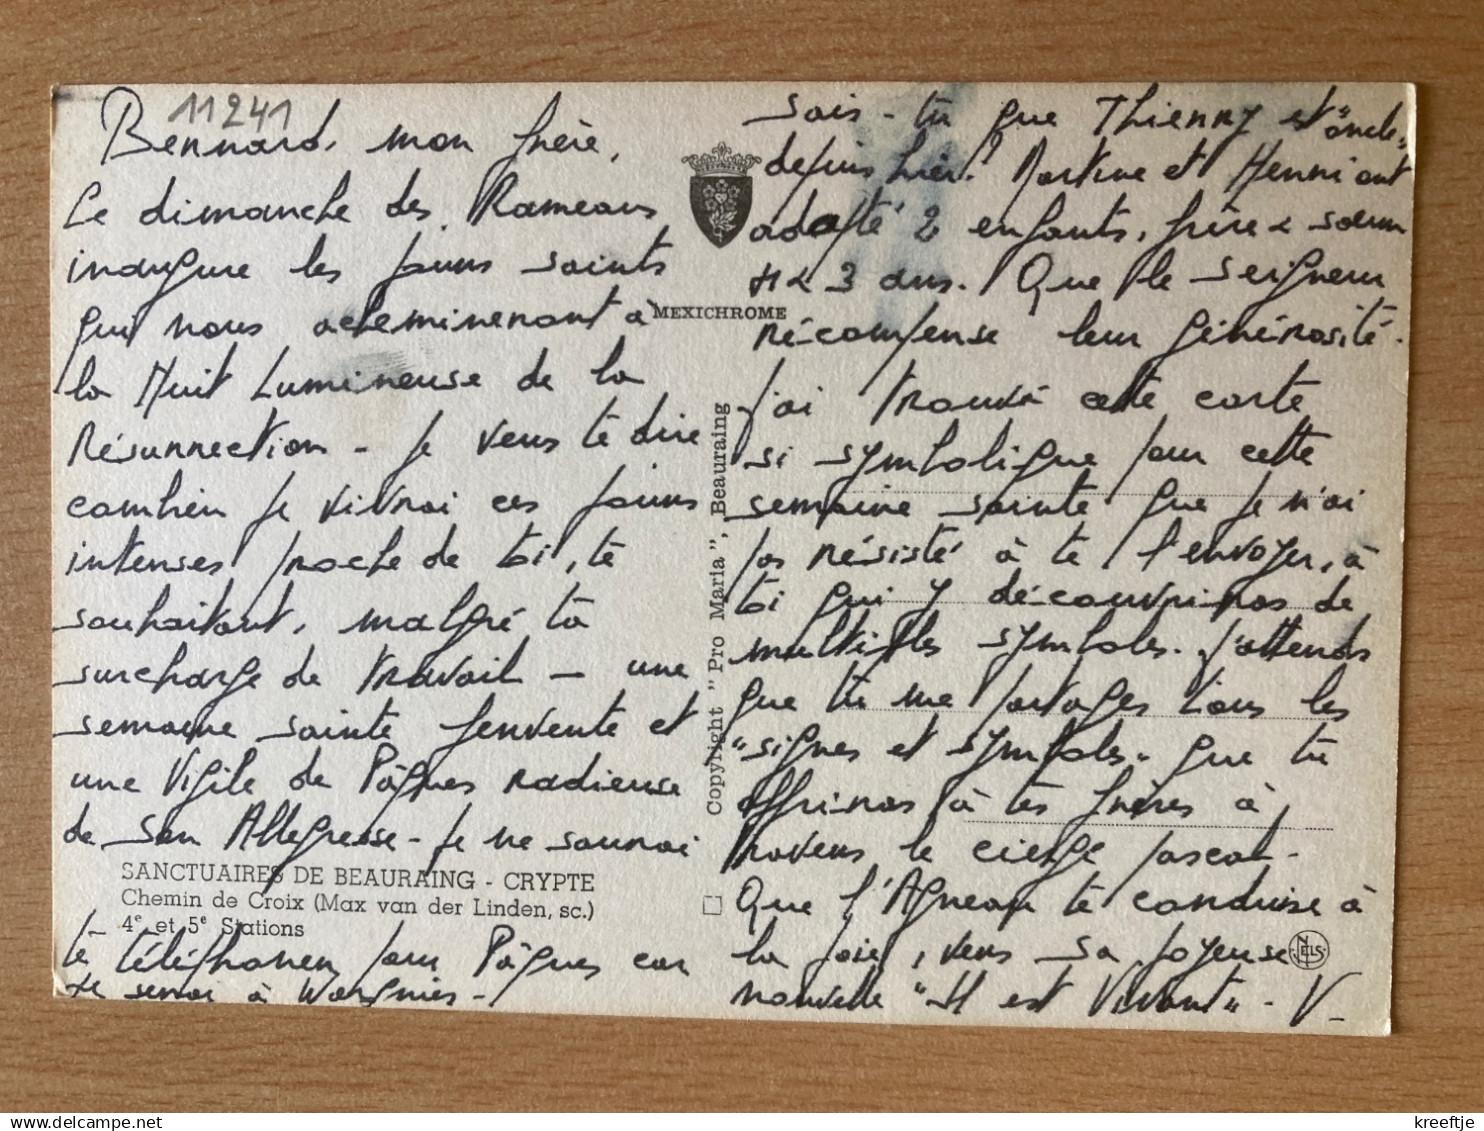 11241
Bernard, mon frère,
Le dimanche des Rameaux
inaugure les jours saints
qui nous achemineront à
la Nuit Lumineuse de la
Résurrection - Je veux te dire
combien je vivrai ces jours
intenses proche de toi, te
souhaitant, malgré ta
surcharge de travail - une
semaine sainte fervente et
une Vigile de Pâques radieuse
de Son Allégresse - Je ne saurai
SANCTUAIRES DE BEAURAING - CRYPTE
Chemin de Croix (Max van der Linden, sc.)
4e et 5e Stations
te téléphoner pour Pâques car
je serai à Wargnies -
MEXICHROME
Copyright "Pro Maria", Beauraing
Sais-tu que Thierry est "oncle"
depuis hier? Martine et Henri ont
adopté 2 enfants, frère & soeur
4 & 3 ans. Que le Seigneur
récompense leur générosité.
J'ai trouvé cette carte
si symbolique pour cette
semaine sainte que je n'ai
pas résisté à te l'envoyer, à
toi qui y découvriras de
multiples symboles. J'attends
que tu me partages tous les
"signes et symboles" que tu
offriras à tes frères à
travers le cierge pascal -
Que l'Agneau te conduise à
la joie, vers sa joyeuse
nouvelle "Il est Vivant" - V-
NELS
kreeftje